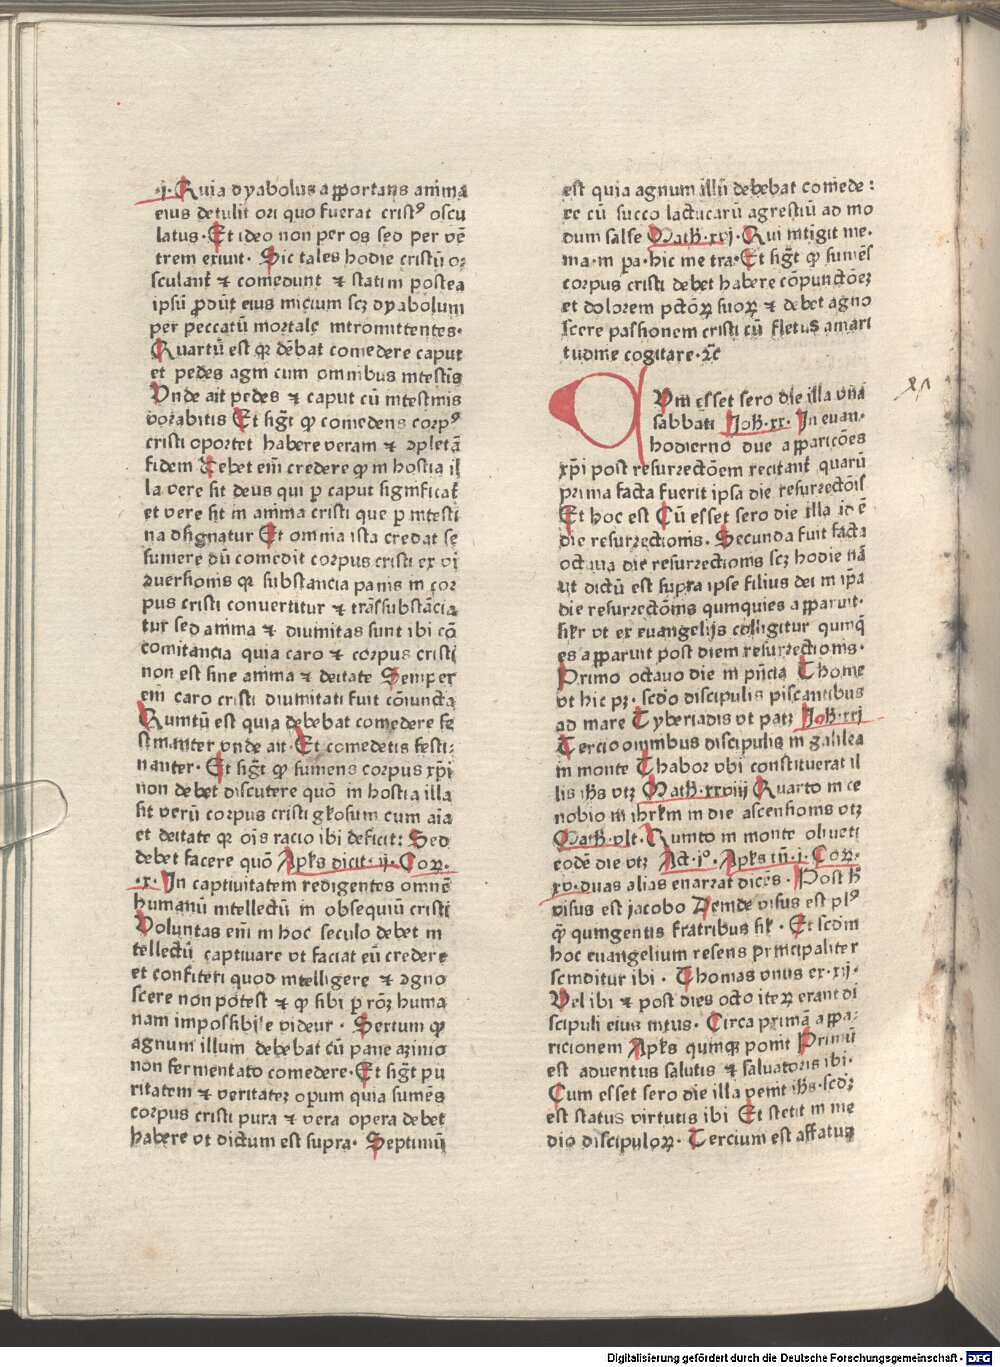 ·i· Quia dyabolus apportans anima
eius detulit ori quo fuerat cristꝰ oscu
latus· Et ideo non per os sed per vē
trem exiuit· Sic tales hodie cristū o⸗
sculant̄ ⁊ comedunt ⁊ statim postea
ipsū ꝓdūt eius inicium scꝫ dyabolum
per peccatū mortale intromittentes·
Quartū est qꝛ dēbat comedere caput
et pedes agni cum omnibus intestis
Vnde ait pedes ⁊ caput cū intestinis
vorabitis Et sigt̄ ꝙ comedens corpꝰ
cristi oportet habere veram ⁊ ꝯpletā
fidem Debet em̄ credere ꝙ in hostia il
la vere sit deus qui ꝑ caput significat̄
et vere sit in anima cristi que ꝑ intesti
na dsignatur Et omnia ista credat se
sumere dū comedit corpus cristi ex vi
ꝯuersionis qꝛ substancia panis in cor
pus cristi conuertitur ⁊ trāssubstācia
tur sed anima ⁊ diuinitas sunt ibi cō
comitancia quia caro ⁊ corpus cristi
non est sine anima ⁊ deitate Semper
em̄ caro cristi diuinitati fuit cōiuncta
Quintū est quia debebat comedere fe
stinanter vnde ait· Et comedetis festi⸗
nanter· Et sigt̄ ꝙ sumens corpus xp̄i
non debet discutere quō in hostia illa
sit verū corpus cristi gl̄osum cum aīa
et deitate qꝛ oīs racio ibi deficit: Sed
debet facere quō Apl̄s dicit· ij· Coꝝ·
·x· In captiuitatem redigentes omnē
humanū intellectū in obsequiū cristi
Voluntas em̄ in hoc seculo debet in
tellectū captiuare vt faciat eū credere
et confiteri quod intelligere ⁊ ꝯgno
scere non potest ⁊ ꝙ sibi ꝑ rōꝫ huma
nam impossibile videur· Sextum ꝙ
agnum illum debebat cū pane azimo
non fermentato comedere· Et sigt̄ pu
ritatem ⁊ veritateꝫ opum quia sumēs
corpus cristi pura ⁊ vera opera debet
habere vt dictum est supra· Septimū
est quia agnum illū debebat comede⸗
re cū succo lactucarū agrestiū ad mo
dum salse Math̄· xvj· Qui intigit me·
ma· in pa· hic me tra· Et sigt̄ ꝙ sumēs
corpus cristi debet habere cōpunctōeꝫ
et dolorem pctōꝝ suoꝝ ⁊ debet agno
scere passionem cristi cū fletus amari
tudine cogitare· ⁊c̄
QVm esset sero die illa vna
sabbati Joh̄· xx· In euan·
hodierno due apparicōes
xp̄i post resurrectōem recitant̄ quarū
prima facta fuerit ipsa die resurrectōis
Et hoc est Cū esset sero die illa id ē
die resurrectionis· Secunda fuit facta
octaua die resurrectionis scꝫ hodie nā
vt dictū est supra ipse filius dei in ip̄a
die resurrectōnis quinquies apparuit·
silr vt ex euangelijs colligitur quinq̄
es apparuit post diem resurrectionis·
Primo octauo die in pn̄cia Thome
vt hic pꝫ· scd̄o discipulis piscantibus
ad mare Tyberiadis vt patꝫ Joh̄· xxi
Tercio omnibus discipulis in galilea
in monte Thabor vbi constituerat il
lis ih̄s vtꝫ Math̄· xxviij Quarto in ce
nobio in ihrl̄m in die ascensionis vtꝫ
Math̄· vlt· Quinto in monte oliueti
eodē die vtꝫ Act· i°· Apl̄s tn̄· i· Coꝝ·
xv· duas alias enarrat dicēs· Post h̄
visus est jacobo Deinde visus est plꝰ
q̄ quingentis fratribus sil· Et scdm̄
hoc euangelium resens principaliter
scinditur ibi· Thomas vnus ex· xij·
Vel ibi ⁊ post dies octo iteꝝ erant di
scipuli eius intus· Circa primā appa⸗
ricionem Apl̄s quinqꝫ ponit Primū
est aduentus salutis ⁊ saluatoris ibi·
Cum esset sero die illa venit ih̄s· scd̄ꝫ
est status virtutis ibi Et stetit in me
dio discipuloꝝ· Tercium est affatus
Digitalisierung gefördert durch die Deutsche Forschungsgemeinschaft · DFG